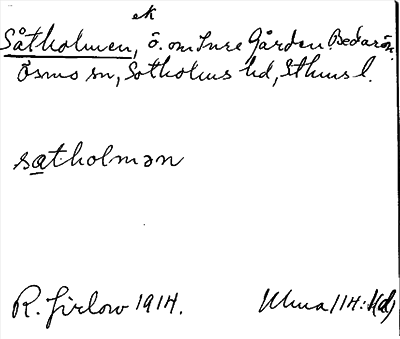 ek
Såtholmen, ö. om Inre Gården Bedarön.
Ösmo sn, Sotholms hd, Sthms l.
sɑthomən
R. Girlow 1914.